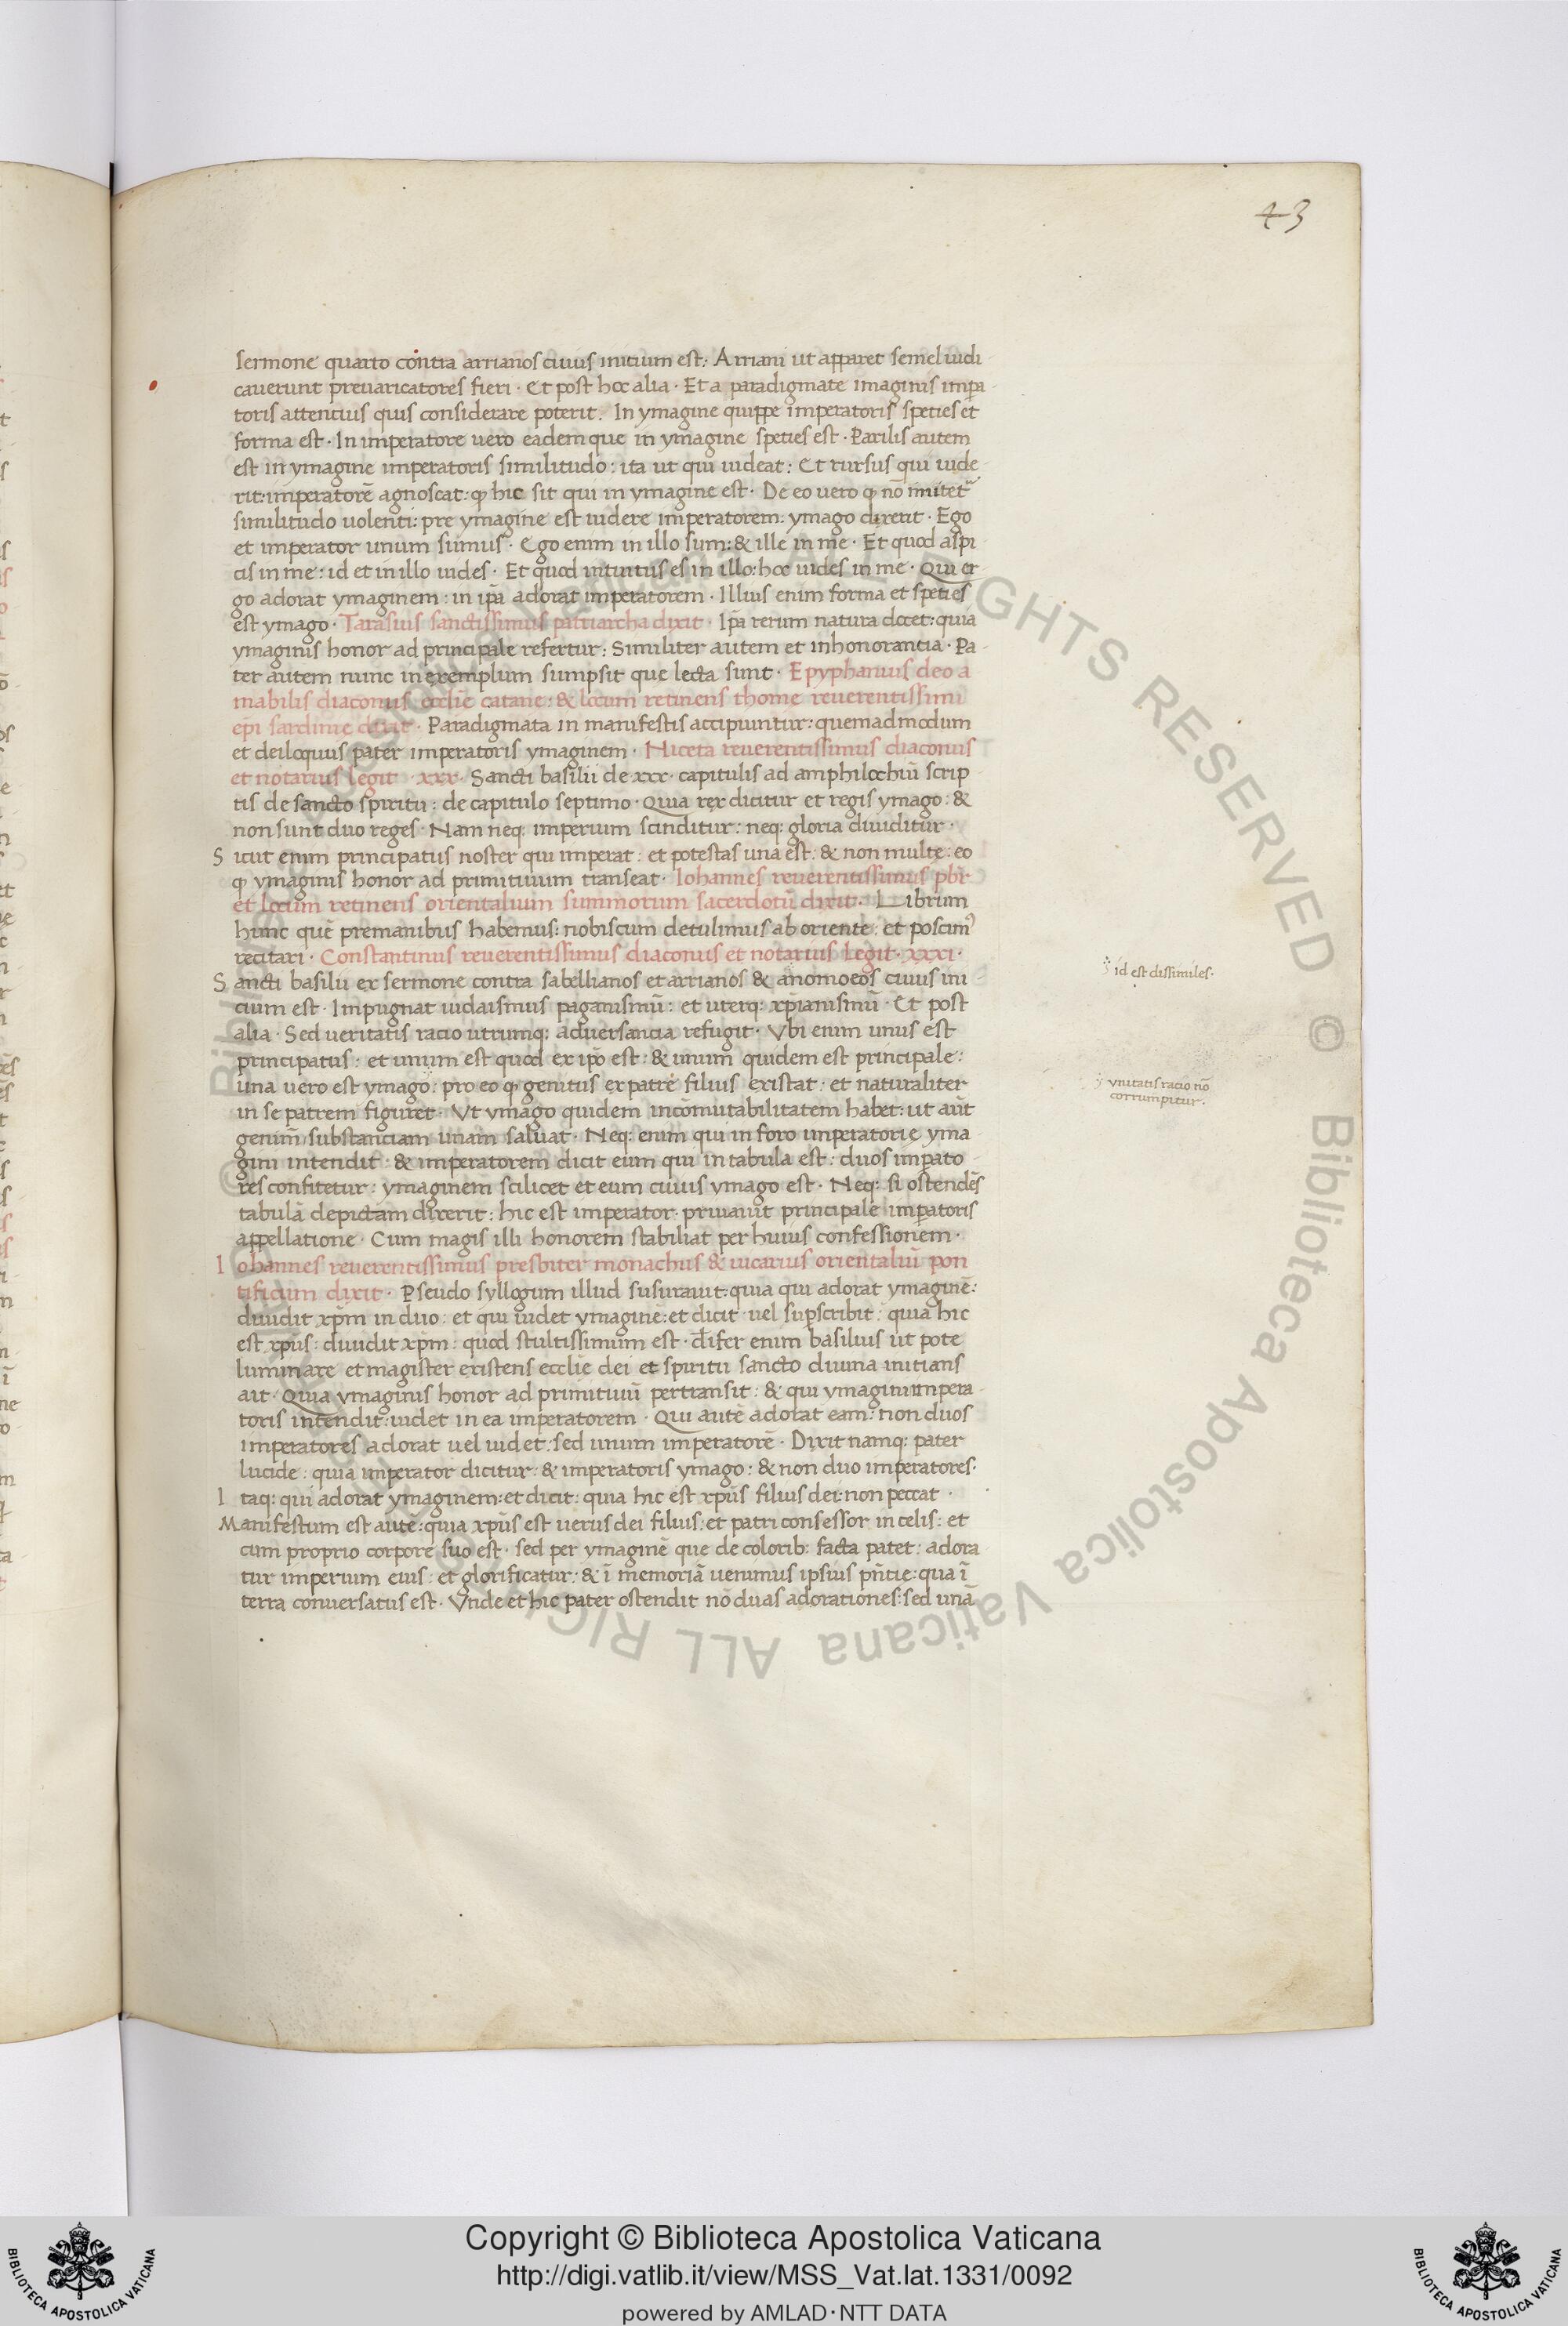 43
sermone quarto contra arrianos cuius initium est: Arriani ut apparet semel iudi
cauerunt preuaricatores fieri · Et post hoc alia · Et a paradigmate imaginis imꝑa
toris attentius quis considerare poterit. In ymagine quippe imperatoris speties et
forma est · In imperatore uero eadem que in ymagine speties est · Parilis autem
est in ymagine imperatoris similitudo: ita ut qui uideat: Et rursus qui uide
rit: imperatorē agnoscat: ꝙ hic sit qui in ymagine est · De eo uero ꝙ nō imitet᷑
similitudo uolenti: pre ymagine est uidere imperatorem: ymago dixerit · Ego
et imperator unum sumus · Ego enim in illo sum: & ille in me · Et quod aspi
cis in me: id et in illo uides · Et quod intuitus es in illo: hoc uides in me · Qui er
go adorat ymaginem: in ip̄a adorat imperatorem · Illius enim forma et speties
est ymago · Tarasius sanctissimus patriarcha dixit · Ip̄a rerum natura docet: quia
ymaginis honor ad principale refertur: Similiter autem et inhonorantia · Pa
ter autem nunc in exemplum sumpsit que lecta sunt · Epyphanius deo a
mabilis diaconus ecclīe catane: & locum retinens thome reuerentissimi
ep̄i sardinie dixit · Paradigmata in manifestis accipiuntur: quemadmodum
et deiloquus pater imperatoris ymaginem · Niceta reuerentissimus diaconus
et notarius legit · xxx · Sancti basilii de xxx · capitulis ad amphilochiū scrip
tis de sancto spiritu: de capitulo septimo · Quia rex dicitur et regis ymago: &
non sunt duo reges · Nam neq: imperium scinditur: neq: gloria diuiditur ·
Sicut enim principatus noster qui imperat: et potestas una est: & non multe: eo
ꝙ ymaginis honor ad primitiuum transeat · Iohannes reuerentissimus pb̄r
et locum retinens orientalium summorum sacerdotū dixit · Librum
hunc quē premanibus habemus: nobiscum detulimus ab oriente: et poscimꝰ
recitari · Constantinus reuerentissimus diaconus et notarius legit · xxxi ·
Sancti basilii ex sermone contra sabellianos et arrianos & anomoeos cuius ini
cium est · Impugnat iudaismus paganismū: et uterq: xp̄ianismū · Et post
alia · Sed ueritatis racio utrumq: aduersancia refugit · Vbi enim unus est
principatus: et unum est quod ex ip̄o est: & unum quidem est principale:
una uero est ymago: pro eo ꝙ genitus ex patre filius existat: et naturaliter
in se patrem figuret · Vt ymago quidem incōmutabilitatem habet: ut aūt
genim̄ substanciam unam saluat · Neq: enim qui in foro imperatorie yma
gini intendit: & imperatorem dicit eum qui in tabula est: duos imꝑato
res confitetur: ymaginem scilicet et eum cuius ymago est · Neq: si ostendēs
tabulā depictam dixerit: hic est imperator · priuauit principale imꝑatoris
appellatione · Cum magis illi honorem stabiliat per huius confessionem ·
Iohannes reuerentissimus presbiter monachus & uicarius orientaliū pon
tificum dixit · Pseudo syllogum illud susurauit: quia qui adorat ymaginē:
diuidit xp̄m in duo: et qui uidet ymaginē: et dicit uel suꝑscribit: quia hic
est xp̄us: diuidit xp̄m: quod stultissimum est · deifer enim basilius ut pote
luminare et magister existens ecclīe dei et spiritu sancto diuina initians
ait · Quia ymaginis honor ad primitiuū pertransit: & qui ymagini impera
toris intendit: uidet in ea imperatorem · Qui autē adorat eam: non duos
imperatores adorat uel uidet: sed unum imperatorē · Dixit namq: pater
lucide: quia imperator dicitur: & imperatoris ymago: & non duo imperatores·
Itaq: qui adorat ymaginem: et dicit: quia hic est xp̄us filius dei: non peccat ·
Manifestum est autē: quia xp̄us est uerus dei filius: et patri consessor in celis: et
cum proprio corpore suo est · sed per ymaginē que de colorib: facta patet: adora
tur imperium eius: et glorificatur: & ī memoriā uenimus ipsius pn̄tie: qua ī
terra conuersatus est · Vnde et hic pater ostendit nō duas adorationes: sed unā
id est dissimiles·
vnitatis racio nō
corrumpitur.
Copyright © Biblioteca Apostolica Vaticana
http://digi.vatlib.it/view/MSS_Vat.lat.1331/0092
powered by AMLAD·NTT DATA